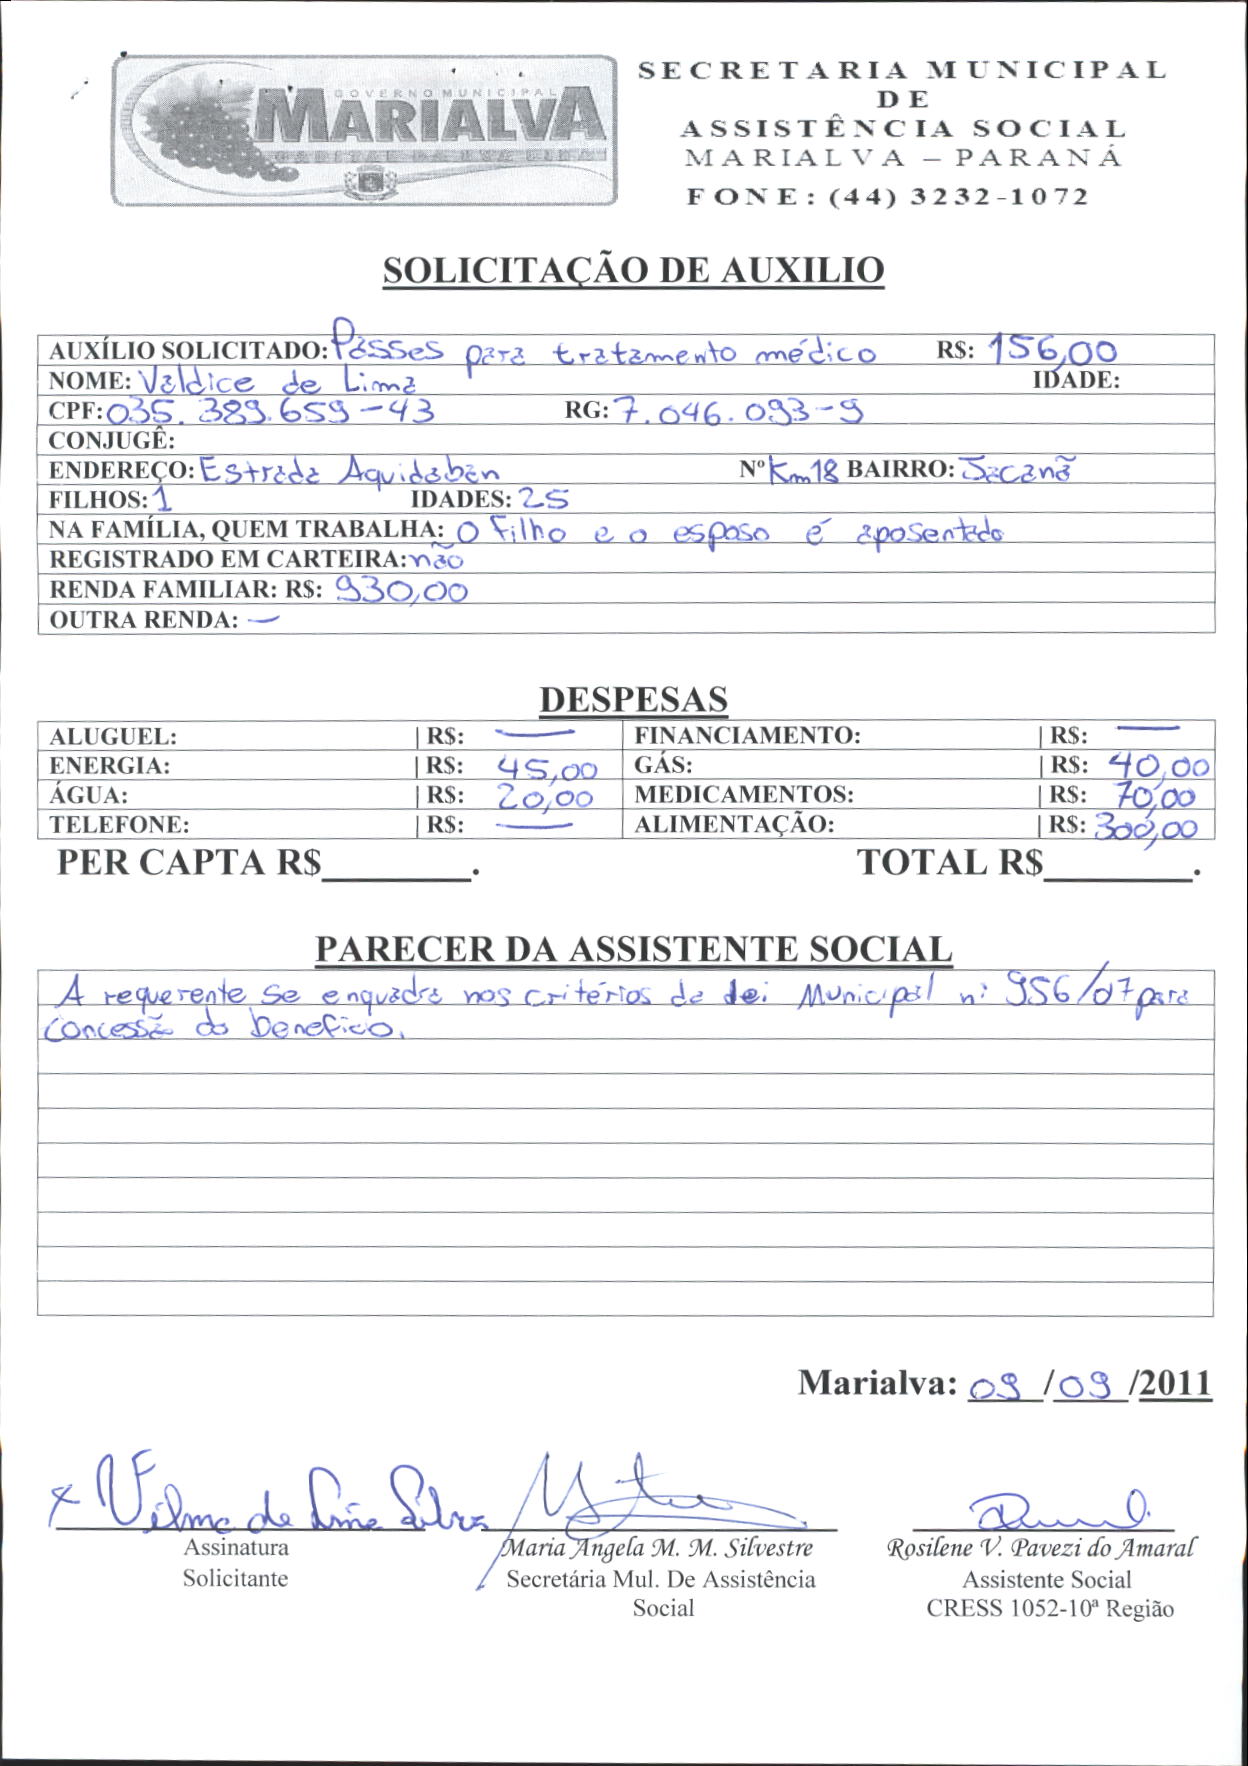 GOVERNO MUNICIPAL
MARIALVA
CAPITAL DA UVA FINA
SECRETARIA MUNICIPAL
DE
ASSISTÊNCIA SOCIAL
MARIALVA – PARANÁ
FONE: (44) 3232-1072
SOLICITAÇÃO DE AUXILIO
AUXÍLIO SOLICITADO: Passes para tratamento médico R$: 156,00
NOME: Valdice de Lima IDADE:
CPF: 035.389.659-43 RG: 7.046.093-9
CONJUGÊ:
ENDEREÇO: Estrada Aquidaban Nº Km18 BAIRRO: Jacanã
FILHOS: 1 IDADES: 25
NA FAMÍLIA, QUEM TRABALHA: O filho e o esposo é aposentado
REGISTRADO EM CARTEIRA: não
RENDA FAMILIAR: R$: 930,00
OUTRA RENDA: —
DESPESAS
ALUGUEL: | R$: — FINANCIAMENTO: | R$: —
ENERGIA: | R$: 45,00 GÁS: | R$: 40,00
ÁGUA: | R$: 20,00 MEDICAMENTOS: | R$: 70,00
TELEFONE: | R$: — ALIMENTAÇÃO: | R$: 300,00
PER CAPTA R$________. TOTAL R$________.
PARECER DA ASSISTENTE SOCIAL
A requerente se enquadra nos critérios da lei Municipal nº 956/07 para
concessão do beneficio.
Marialva: 09 /09 /2011
x Vilma de Lima Silva
Assinatura Maria Angela M. M. Silvestre Rosilene V. Pavezi do Amaral
Solicitante Secretária Mul. De Assistência Assistente Social
Social CRESS 1052-10ª Região